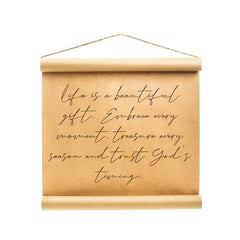 life is a beautiful
gift. Embrace every
moment, treasure every
season and trust God's
timing.